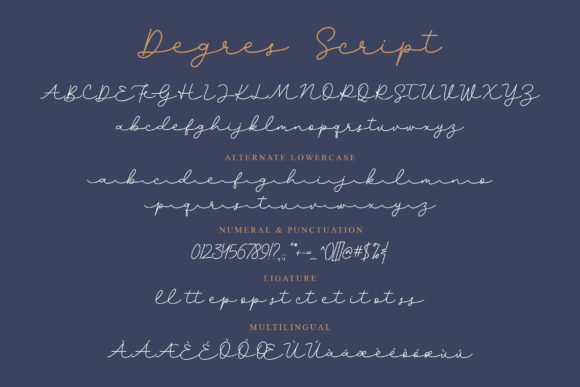 Degres Script
ABCDEFGHIJKLMNOPQRSTUVWXYZ
abcdefghijklmnopqrstuvwxyz
ALTERNATE LOWERCASE
abcdefghijklmno
pqrstuvwxyz
NUMERAL & PUNCTUATION
0123456789!?.,:; "*+-=_ ^()[]@#$%&
LIGATURE
ll tt ep op st ct et it ot ss
MULTILINGUAL
ÀÁÆÈÉÒÓŒÙÚàáæèéòóœùú